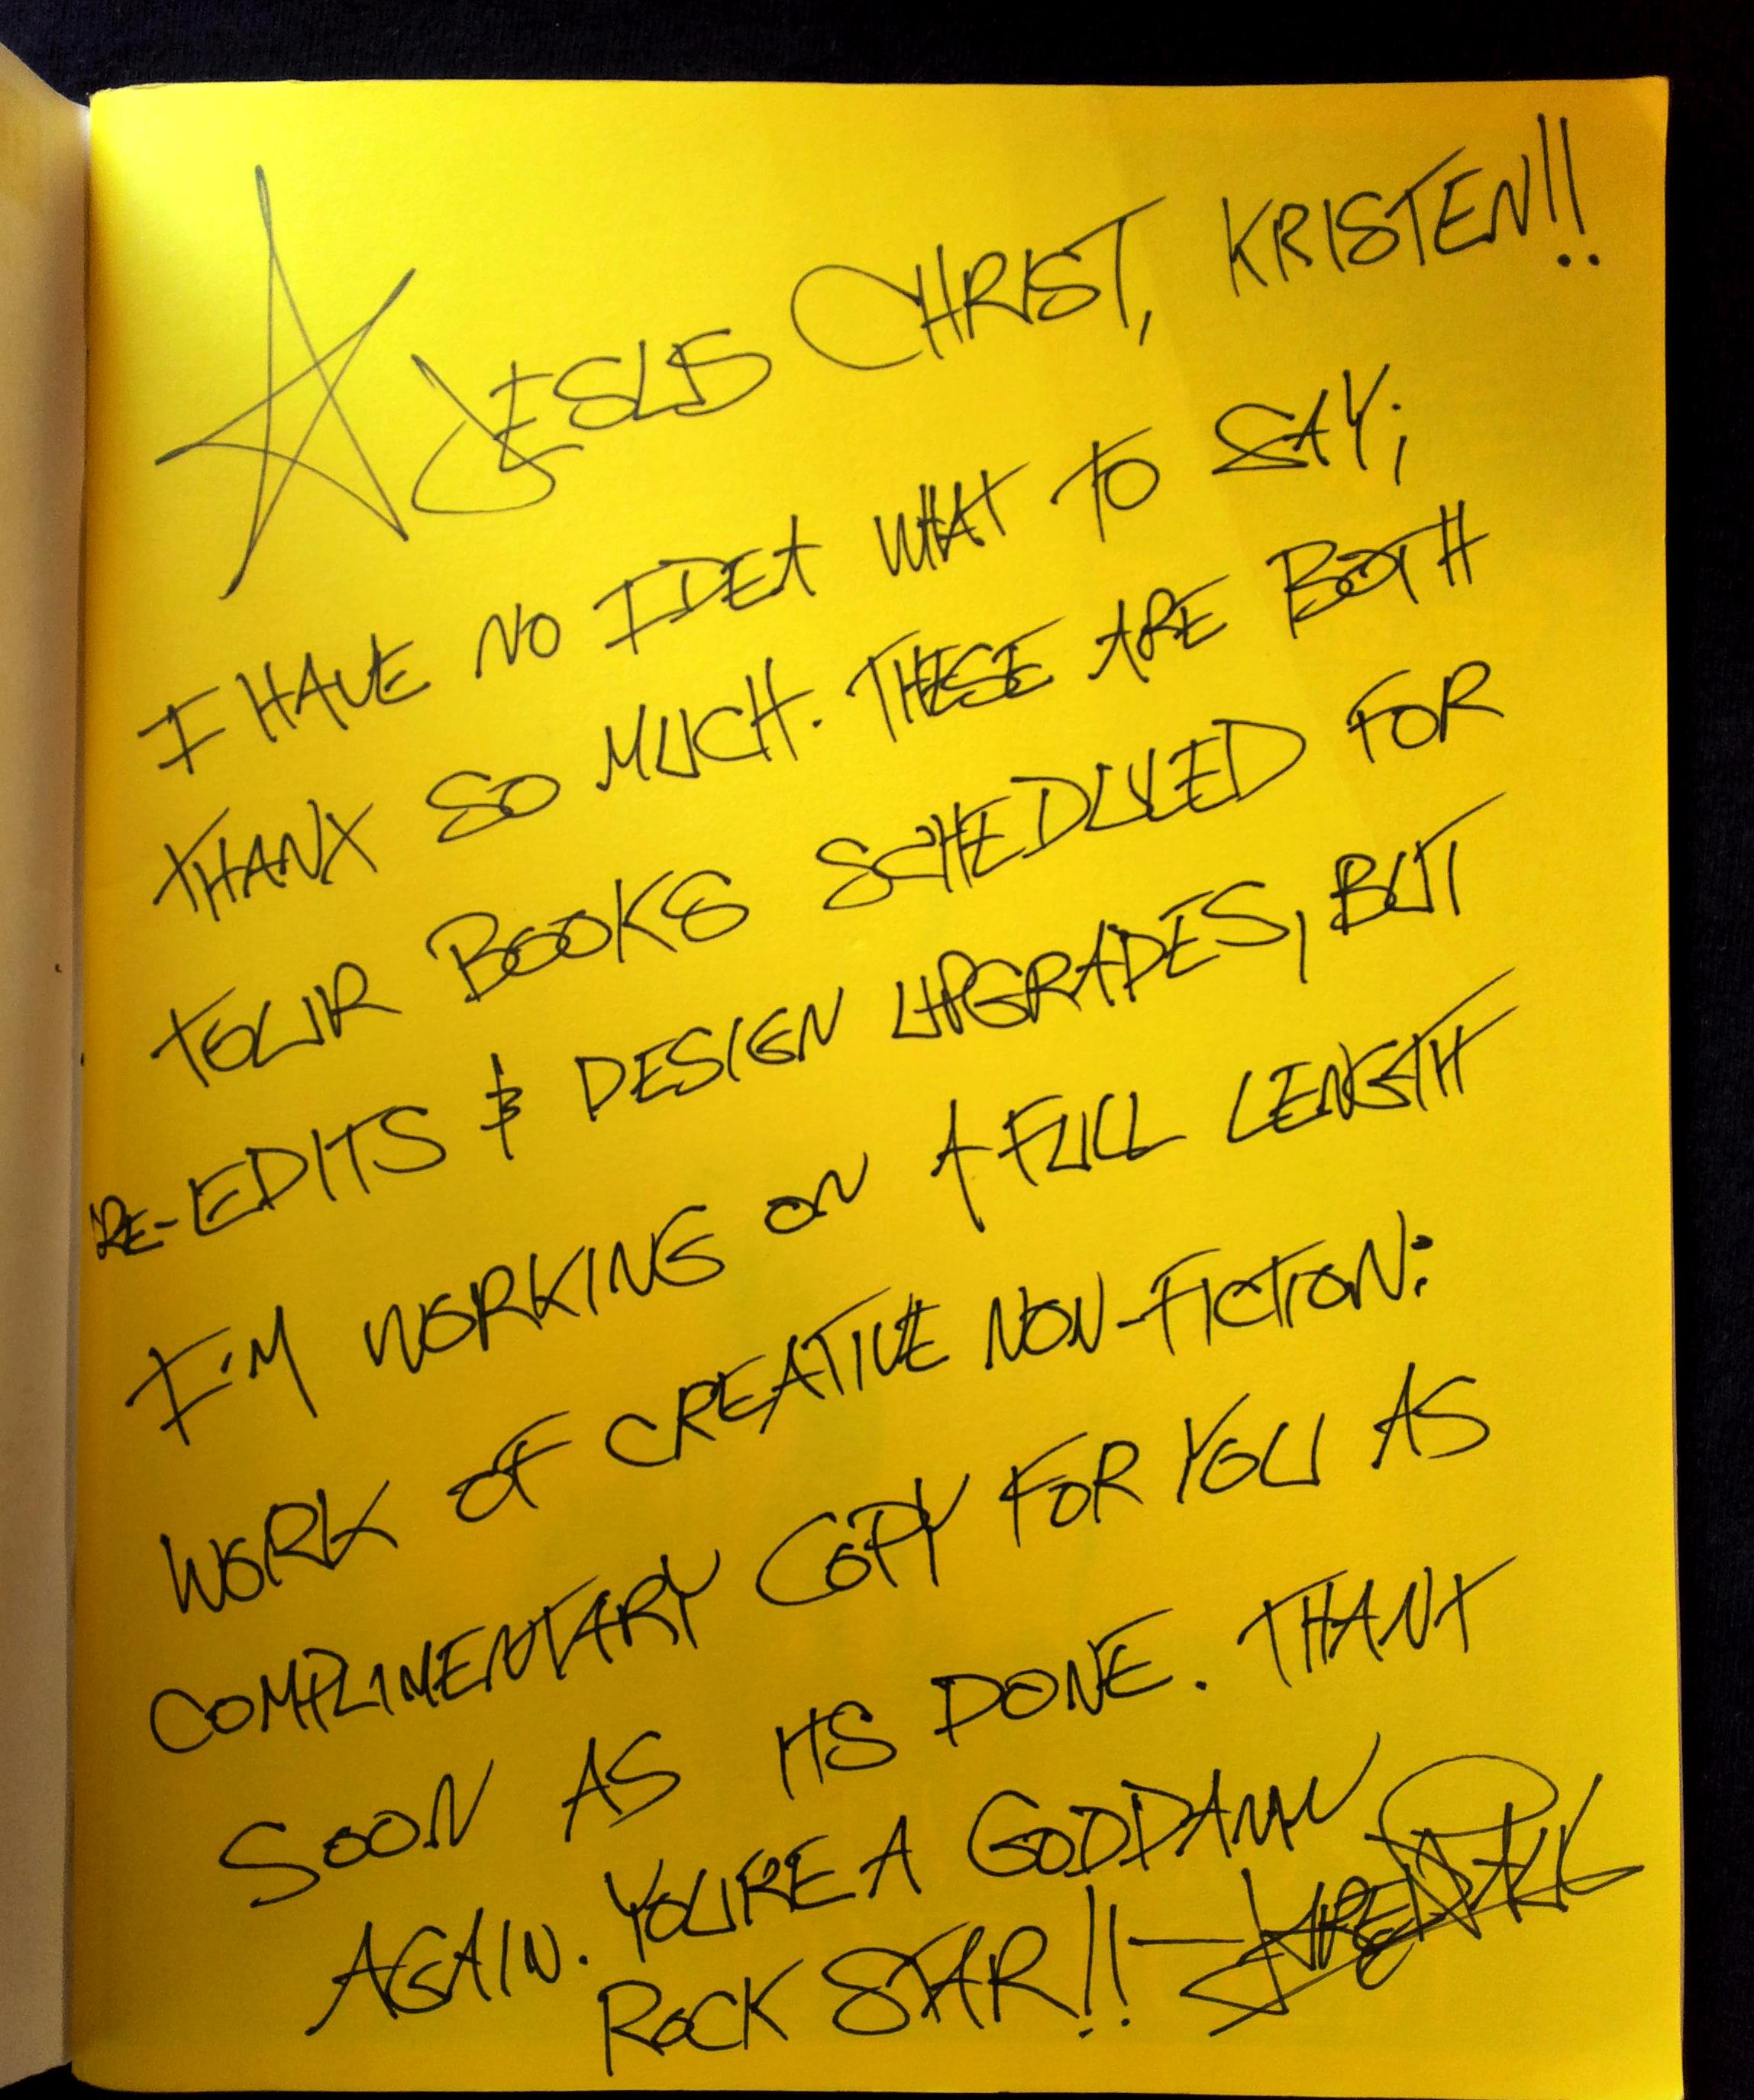 JESUS CHRIST, KRISTEN!!
I HAVE NO IDEA WHAT TO SAY;
THANX SO MUCH. THESE ARE BOTH
TOUR BOOKS SCHEDULED FOR
RE-EDITS & DESIGN UPGRADES, BUT
I'M WORKING ON A FULL LENGTH
WORK OF CREATIVE NON-FICTION:
COMPLIMENTARY COPY FOR YOU AS
SOON AS ITS DONE. THANX
AGAIN. YOU'RE A GODDAMN
ROCK STAR!! —